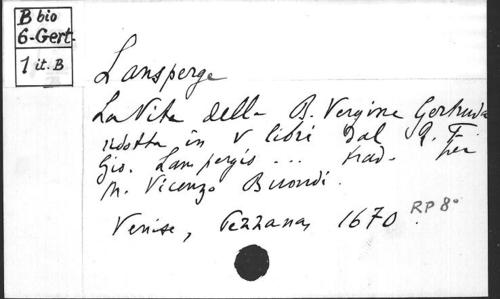 B bio
6-Gert.
1 it. B
Lansperge
La Vita della B. Vergine Gertruda
ridotta in V libri dal R. F.
Gio. Lanspergio ... trad. per
M. Vicenzo Buondi.
Venise, Pezzana, 1670
RP 8°